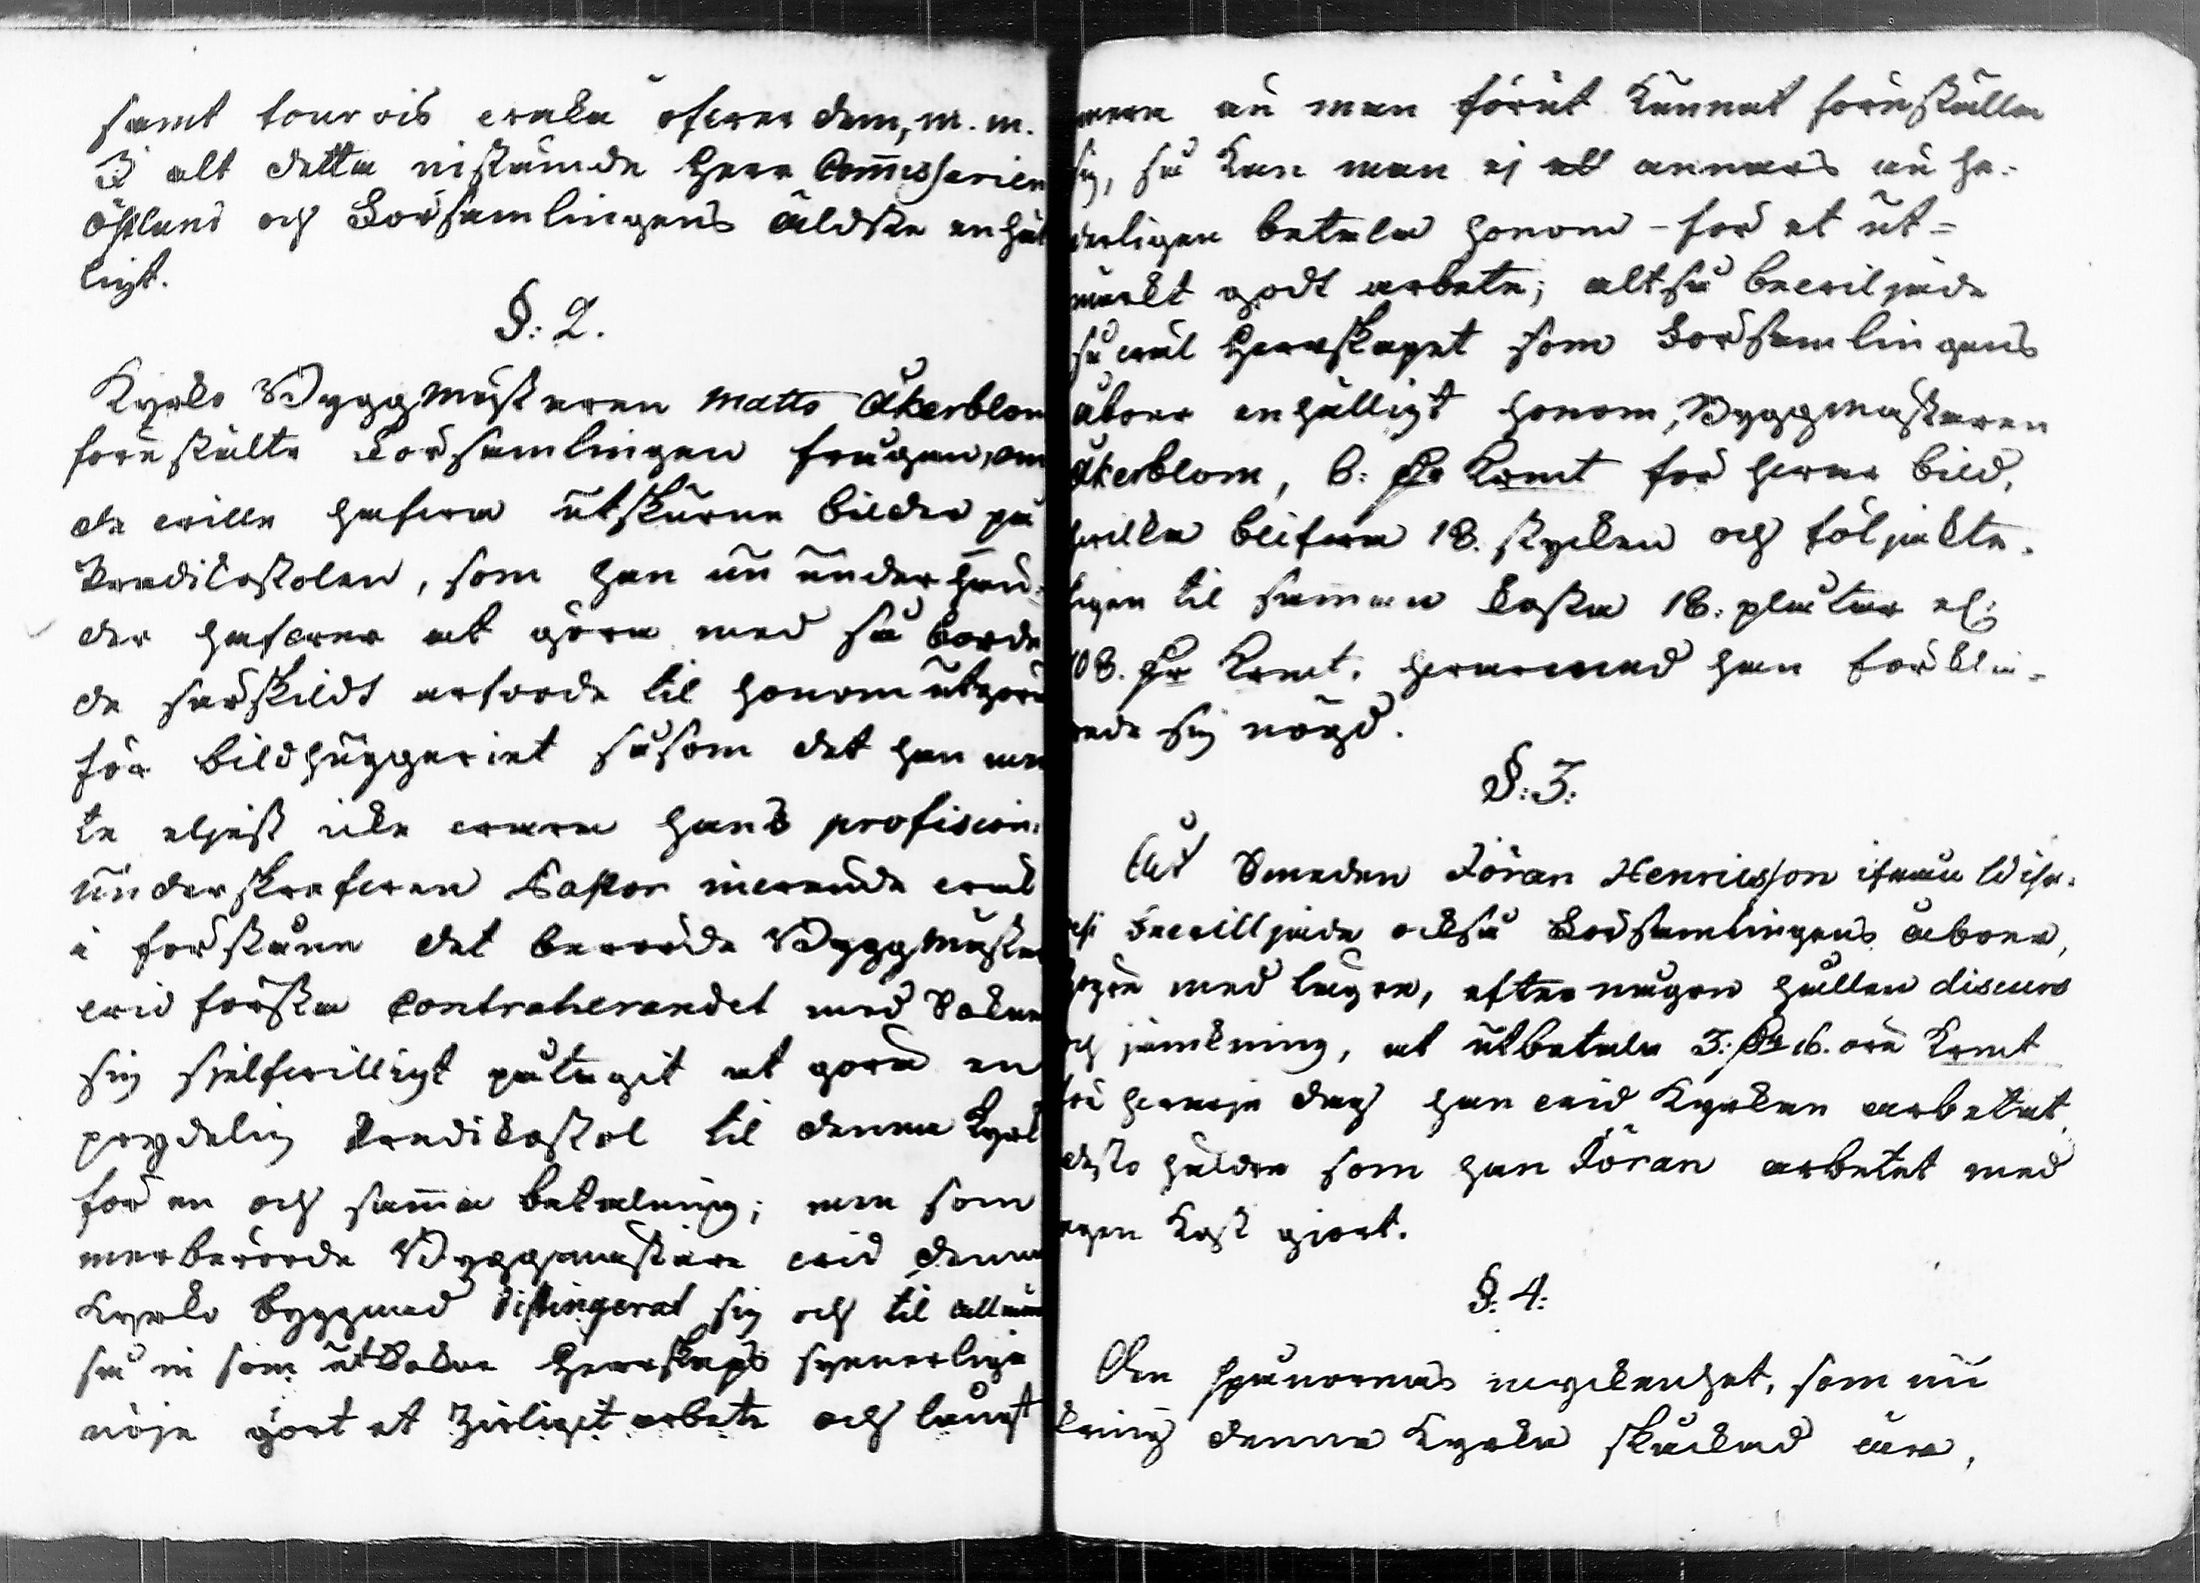 samt tourvis wraka öfwer dem, m. m.
I alt detta instämde Herr Commissarien
Östlund och Församlingens äldste enhäl
ligt.
§: 2.
Kyrko Byggmästaren Matts Åkerblom
förestälte Församlingen frågan, om
de wille hafwa utskurne bilder på
Predikostolen, som han nu under hän-
der hafwer at göra med så borde
de särskildt arfvode til honom utgöra
för bildhuggeriet såsom det han men
te eljest icke wara hans profession.
Underskrefwen Pastor inwände wäl
i förstone det berörde Byggmästar
wid första Contraherandet med Sokne
sig sjelfwilligt påtagit at göra en
prydelig Predikostol til denna Kyrk
för en och samma betalning; men som
merberörde Byggmästare wid denna
Kyrko byggnad distingerat sig och til allmän
så in som utSokne Herrskaps synnerliga
nöje gjort et Zirligit arbete och långt
mera än man förut kunnat föreställa
sig, så kan man ej all annars än he-
derligen betala honom för et ut-
märkt godt arbete; altså bewiljade
så wäl Herrskapet som Församlingens
åboer enhälligt honom, Byggmästaren
Åkerblom, 6: Dr Kmt för hwar bild,
hwilka blifwa 18. stycken och följakte-
ligen til samman kosta 18: plåtar el:
108. Dr Kmt. hwarmed han förkla-
rade sig nögd.
§: 3.
Åt Smeden Jöran Henricsson ifrån Wihe-
resi bewilljade också Församlingens åboer,
högre med lägre, efter någon hållen discurs
och jämkning, at utbetala 3: Dr 16. öre Kmt
för hwarje dag han wid Kyrkan arbetat,
desto hälder som han Jöran arbetat med
egen Kost gjort.
§: 4.
Om spånornas myckenhet, som nu
kring denna Kyrka skäckad äro,